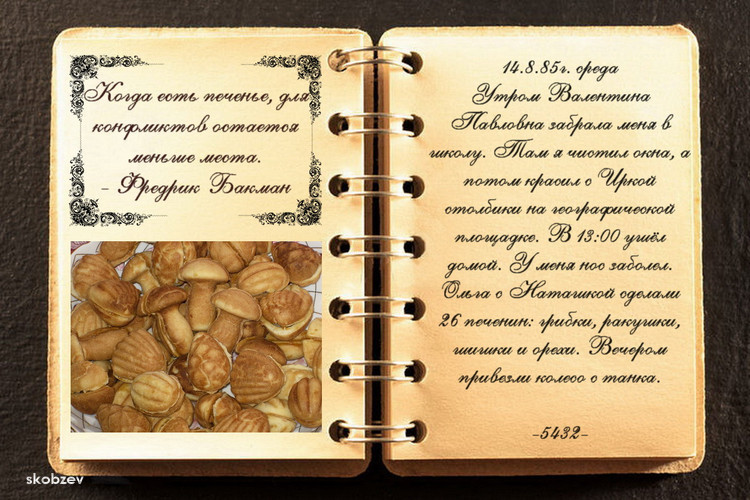 Когда есть печенье, для
конфликтов остается
меньше места.
- Фредрик Бакман
14.8.85г. среда
Утром Валентина
Павловна забрала меня в
школу. Там я чистил окна, а
потом красил с Иркой
столбики на географической
площадке. В 13:00 ушёл
домой. У меня нос заболел.
Ольга с Наташкой сделали
26 печенин: грибки, ракушки,
шишки и орехи. Вечером
привезли колесо с танка.
-5432-
skobzev